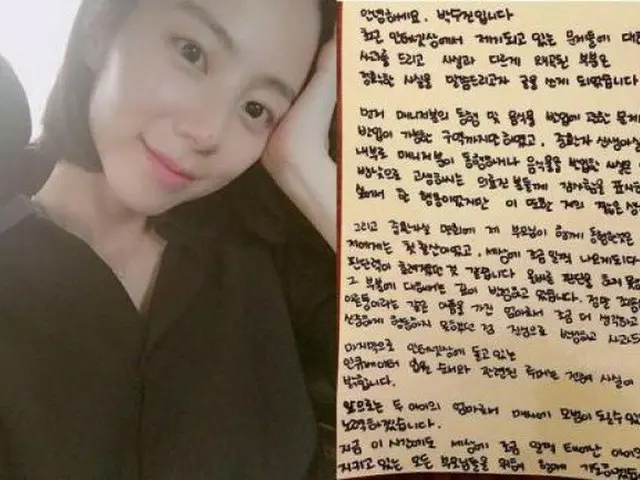 안녕하세요. 박수진입니다
최근 인터넷상에서 제기되고 있는 문제들에 대한
사과를 드리고 사실과 다르게 왜곡된 부분은
정확한 사실을 말씀드리고자 글을 쓰게 되었습니다
먼저 매니저분의 동행 및 음식물 반입에 관한 문제
반입이 가능한 구역까지만 하였고, 중환자 신생아실
내부로 매니저분이 동행하거나 음식물을 반입한 사실은
밤낮으로 고생하시는 의료진 분들께 감사함을 표시
실에서 한 행동이었지만 이 또한 저의 짧은 생
그리고 중환자실 면회에 제 부모님이 함께 동행한것은
저에게는 첫 출산이었고, 세상에 조금 일찍 나오게되다
판단력이 흐려졌던 것 같습니다 올바른 판단을 하지 못
그 부분에 대해서는 깊이 반성하고 있습니다.
이른둥이라는 같은 아픔을 가진 엄마로서 조금 더 생각하고
신중하게 행동하지 못했던 점 진심으로 반성하고 사과드
마지막으로 인터넷상에 돌고 있는
인큐베이터 입원 순서와 관련된 루머는 전혀 사실이
밝힙니다.
앞으로는 두 아이의 엄마로서 매사에 모범이 되도록
노력하겠습니다.
지금 이 시간에도 세상에 조금 일찍 태어난 아이
지키고 있는 모든 부모님들을 위해 함께 기도하겠